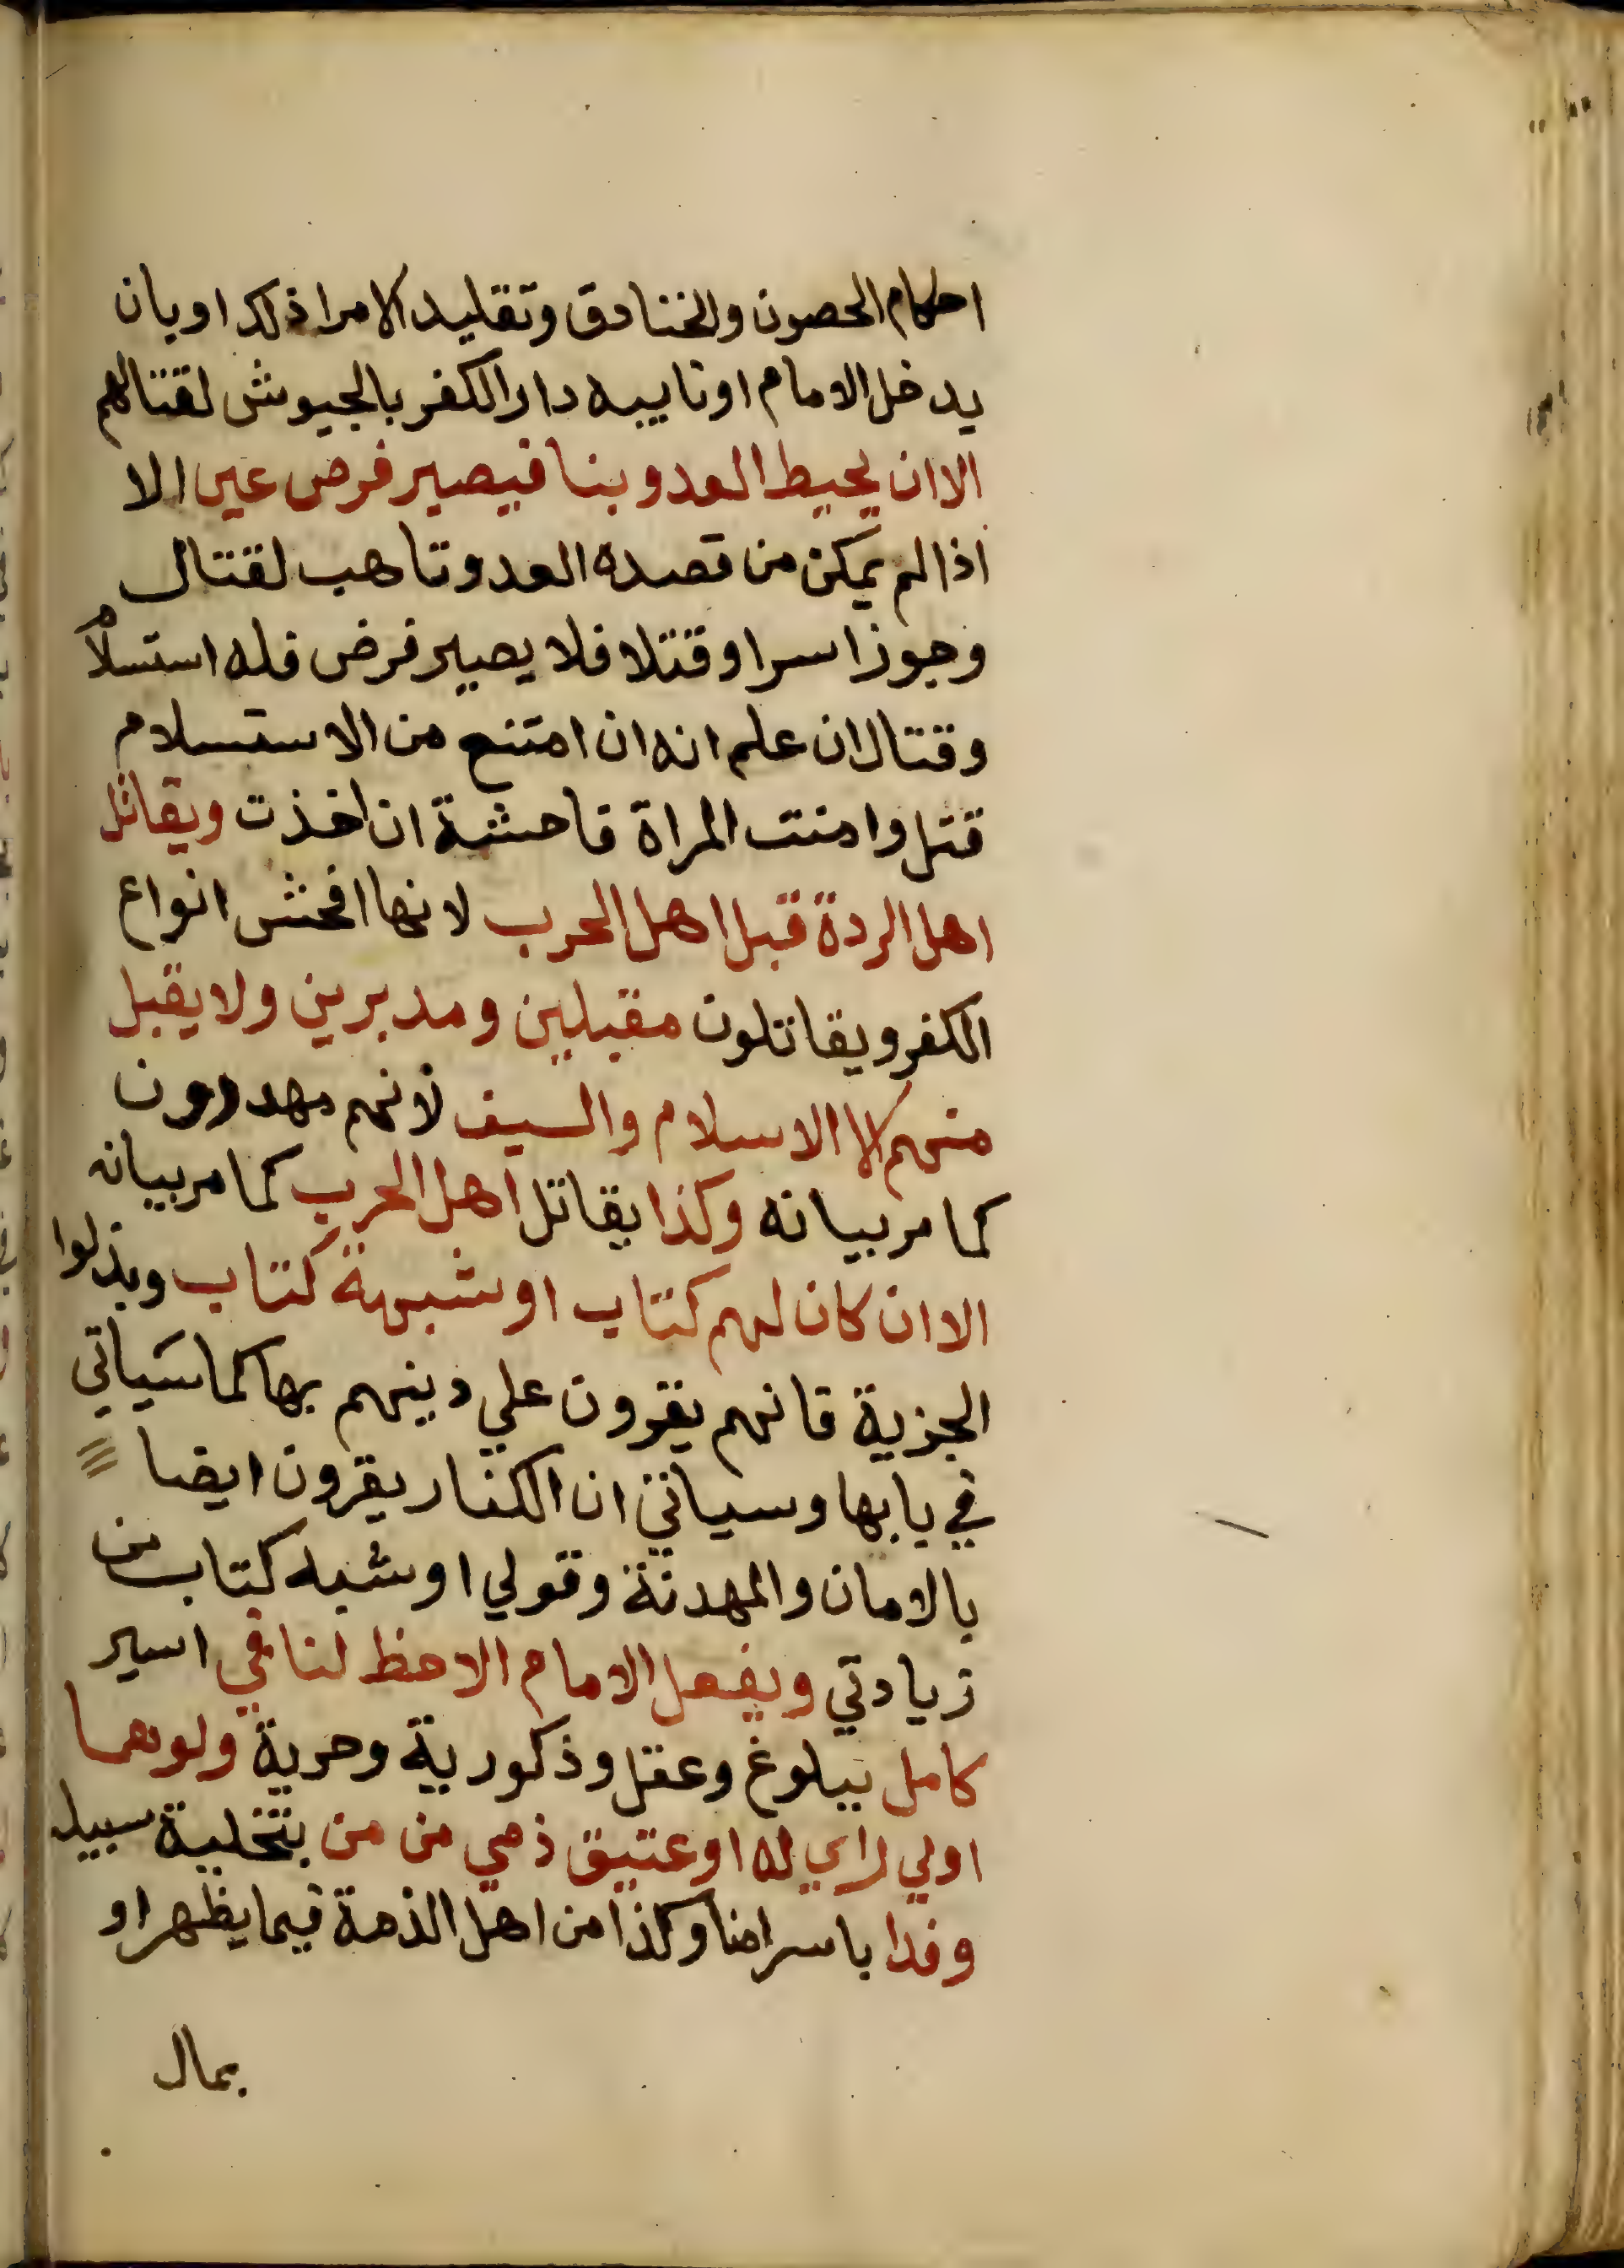 احكام الحصون والخنادق وتقليد الامرا ذلك او بان
يدخل الامام او نايبه دار الكفر بالجيوش لقتالهم
الا ان يحيط العدو بنا فيصير فرض عين الا
اذا لم يمكن من قصده العدو تاهب لقتال
وجوز اسرا وقتلا فلا يصير فرض فله استسلام
وقتال ان علم انه ان امتنع من الاستسلام
قتل وامنت المراة فاحشة ان اخذت ويقاتل
اهل الردة قبل اهل الحرب لانها افحش انواع
الكفر ويقاتلون مقبلين ومدبرين ولا يقبل
منهم الا الاسلام والسيف لانهم مهدرون
كما مر بيانه وكذا يقاتل اهل الحرب كما مر بيانه
الا ان كان لهم كتاب او شبهة كتاب وبذلوا
الجزية فانهم يقرون علي دينهم بها كما سياتي
في بابها وسياتي ان الكفار يقرون ايضا
بالامان والهدنة وقولي او شبه كتاب من
زيادتي ويفعل الامام الاحظ لنا في اسير
كامل ببلوغ وعقل وذكورية وحرية ولو هما
او لي راي له او عتيق ذمي من من بتخلية سبيل
وفدا باسرانا وكذا من اهل الذمة فيما يظهر او
بمال